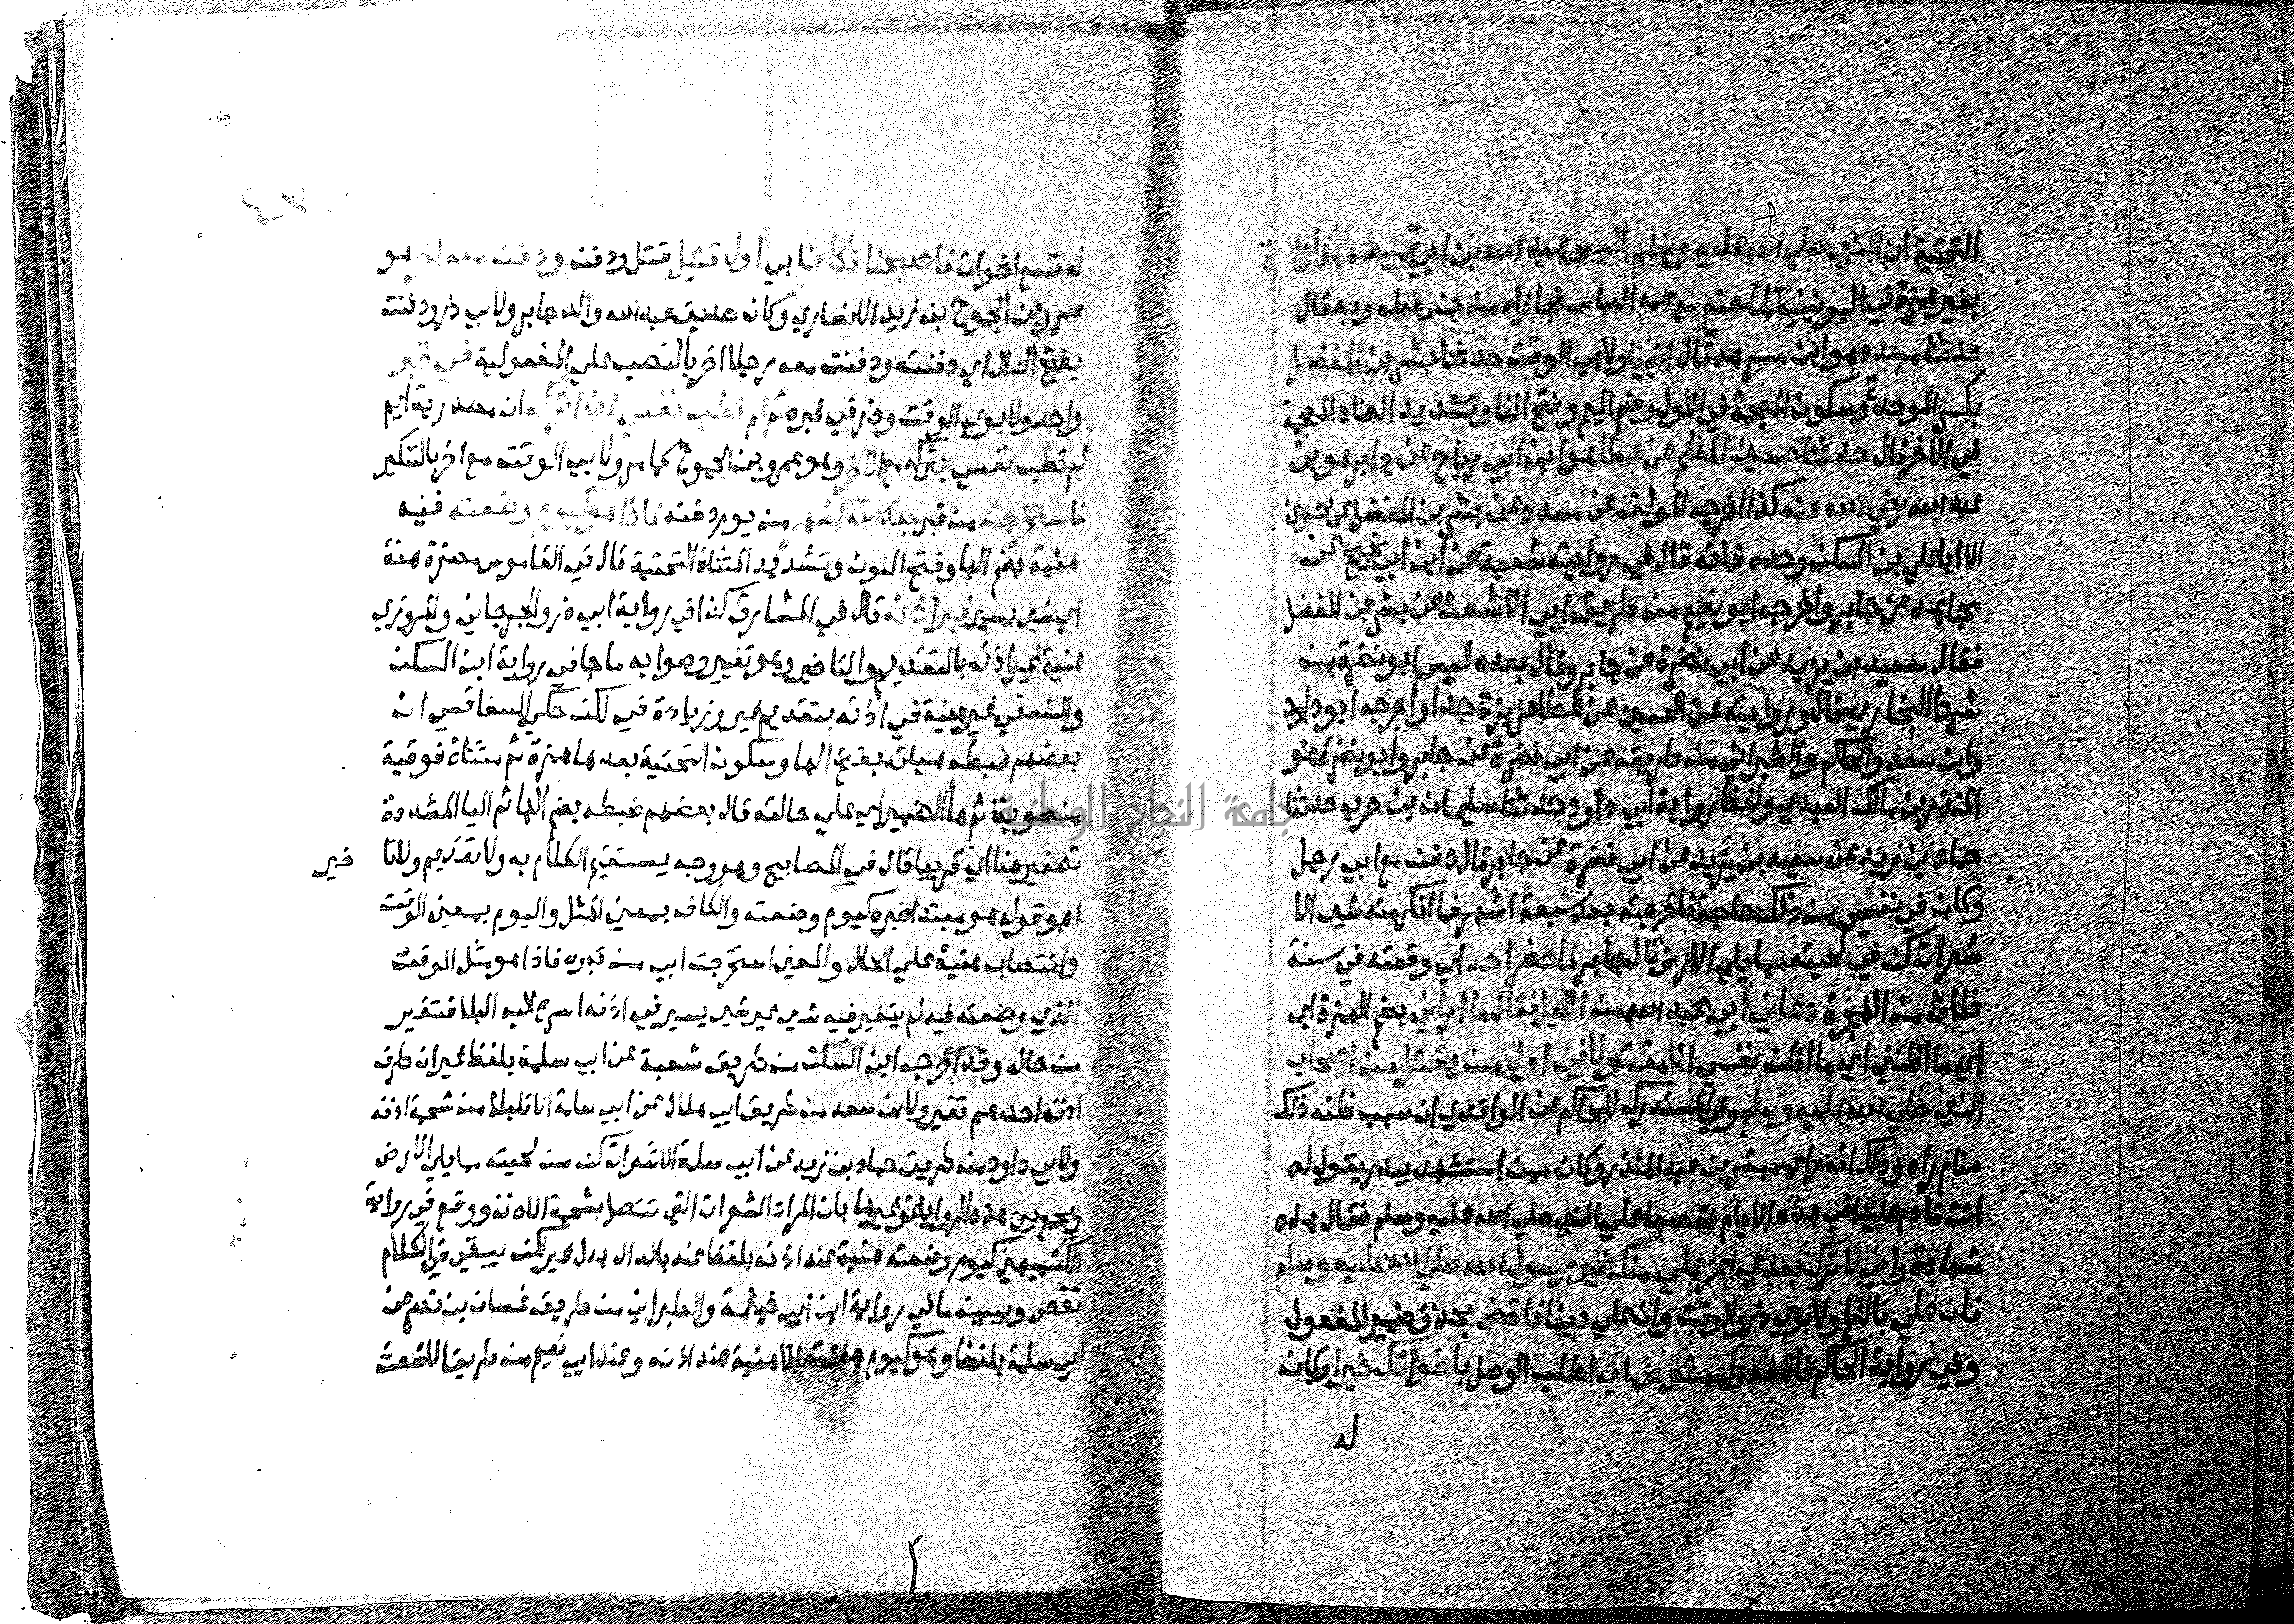 التحتية ان النبي صلي الله عليه وسلم البس عبد الله بن ابي قميصه مكافاة
بغير همزة في اليونينية لما صنع مع عمه العباس فجازاه من جنس فعله وبه قال
حدثنا مسدد هو ابن مسرهد قال اخبرنا ولابي الوقت حدثنا بشر بن المفضل
بكسر الموحدة وسكون المعجمة في الاول وضم الميم وفتح الفا وتشديد الضاد المعجمة
في الاخر قال حدثنا حسين المعلم عن عطا هو ابن ابي رباح عن جابر هو بن
عبد الله رضي الله عنه كذا اخرجه المولف عن مسدد عن بشر بن المفضل عن حسين
الا ابا علي بن السكن وحده فانه قال في روايته شعبة عن ابن ابي نجيح عن
مجاهد عن جابر واخرجه ابو نعيم من طريق ابي الاشعث عن بشر بن المفضل
فقال سعيد بن يزيد عن ابي نضرة عن جابر وقال بعده ليس ابو نضرة من
شرط البخاري قال وروايته عن الحسين عن عطا عزيزة جدا واخرجه ابو داود
وابن سعد والحاكم والطبراني من طريقه عن ابي نضرة عن جابر وابو نضرة هو
المنذر بن مالك العبدي ولفظ رواية ابي داود حدثنا سليمان بن حرب حدثنا
حماد بن زيد عن سعيد بن يزيد عن ابي نضرة عن جابر قال دفن مع ابي رجل
وكان في نفسي من ذلك حاجة فاخرجته بعد ستة اشهر فما انكر منه شي الا
شعرات كن في لحيته مما يلي الارض قال جابر لما حضر احد اي وقعته في سنة
ثلاث من الهجرة دعاني ابي عبد الله من الليل فقال ما اراني بضم الهمزة اي
اي ما اظنني اي ما اظن نفسي الا مقتولا في اول من يقتل من اصحاب
النبي صلي الله عليه وسلم وفي المستدرك للحاكم عن الواقدي ان سبب ظنه ذلك
منام راه وذلك انه راي مبشر بن عبد المنذر وكان ممن استشهد ببدر يقول له
انت قادم علينا في هذه الايام فقصها علي النبي صلي الله عليه وسلم فقال هذه
شهادة واني لا اترك بعدي اعز علي منك غير رسول الله صلي الله عليه وسلم
فان علي بالفا ولابوي ذر والوقت وان علي دينا فاقض بحذف ضمير المفعول
وفي رواية الحاكم فاقضه واستوص اي اطلب الوصل باخواتك خيرا وكان
له
٤٣
له تسع اخوات فاصبحنا فكان ابي اول قتيل قتل ودفن ودفنت معه اخر هو
عمرو بن الجموح بن زيد الانصاري وكان صديق عبد الله والد جابر ولابي ذر ودفنت
بفتح الدال اي دفنته ودفنت معه رجلا اخر بالنصب علي المفعولية في قبر
واحد ولابوي الوقت وذر في قبره ثم لم تطب نفسي ان اتركه ان مصدرية اي
لم تطب نفسي بتركه مع الاخر وهو عمرو بن الجموح كما مر ولابي الوقت مع اخر بالتنكير
فاستخرجته من قبره بعد ستة اشهر من يوم دفنه فاذا هو كيوم وضعته فيه
هنية بضم الها وفتح النون وتشديد المثناة التحتية قال في القاموس مصغرة هنة
اي شي يسير غير اذنه قال في المشارق كذا في رواية ابي ذر والجرجاني والمروزي
هنية غير اذنه بالتقديم والتاخير وهو تغيير وصوابه ما جا في رواية ابن السكن
والنسفي غير هنية في اذنه بتقديم غير وزيادة في لكن حكي السفاقسي ان
بعضهم ضبطه هيأته بفتح الها وسكون التحتية بعدها همزة ثم مثناة فوقية
منصوبة ثم ها الضمير اي علي حالته قال بعضهم ضبطه بضم الها ثم اليا المشددة
تصغير هنا اي قريبا قال في المصابيح وهو وجه يستقيم الكلام به ولا تقديم ولا تا
خير
اه وقوله هو مبتدا خبره كيوم وضعته والكاف بمعني المثل واليوم بمعني الوقت
وانتصاب هنية علي الحال والمعني استخرجت ابي من قبره فاذا هو مثل الوقت
الذي وضعته فيه لم يتغير فيه شي غير شي يسير في اذنه اسرع اليه البلا فتغير
من حاله وقد اخرجه ابن السكن من طريق شعبة عن ابي سلمة بلفظ غير ان طرف
اذنه احدهم تغير ولابن سعد من طريق ابي هلال عن ابي سلمة الا قليلا من شحمة اذنه
ولابي داود من طريق حماد بن زيد عن ابي سلمة الا شعرات كن من لحيته مما يلي الارض
ويجمع بين هذه الرواية وغيرها بان المراد الشعرات التي تتصل بشحمة الاذن ووقع في رواية
الكشميهني كيوم وضعته هنية عند اذنه بلفظ عند بالدال بدل غير لكن يبقي في الكلام
نقص ويبينه ما في رواية ابن ابي خيثمة والطبراني من طريق غسان بن نصر عن
ابي سلمة بلفظ وهو كيوم دفنته الا هنية عند اذنه وعند ابي نعيم من طريق الاشعث
جامعة النجاح الوطنية